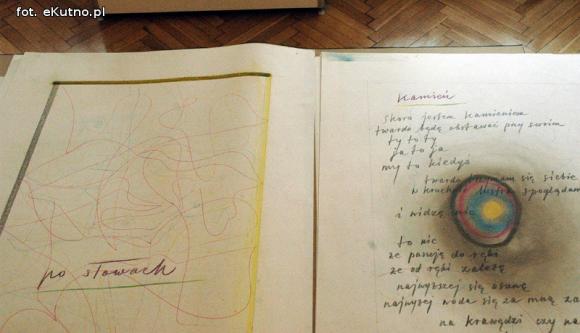 fot. eKutno.pl
po słowach
Kamień
Skoro jestem kamieniem
twardo będę obstawać przy swoim
ty to ty
ja to ja
my to kiedyś
twardo trzymam się siebie
w kruchość lustra spoglądam
i widzę
to nic
że pasuję do ręki
że od ręki zależę
najwyżej się osunę
najwyżej woda się za mną za
na krawędzi czy na